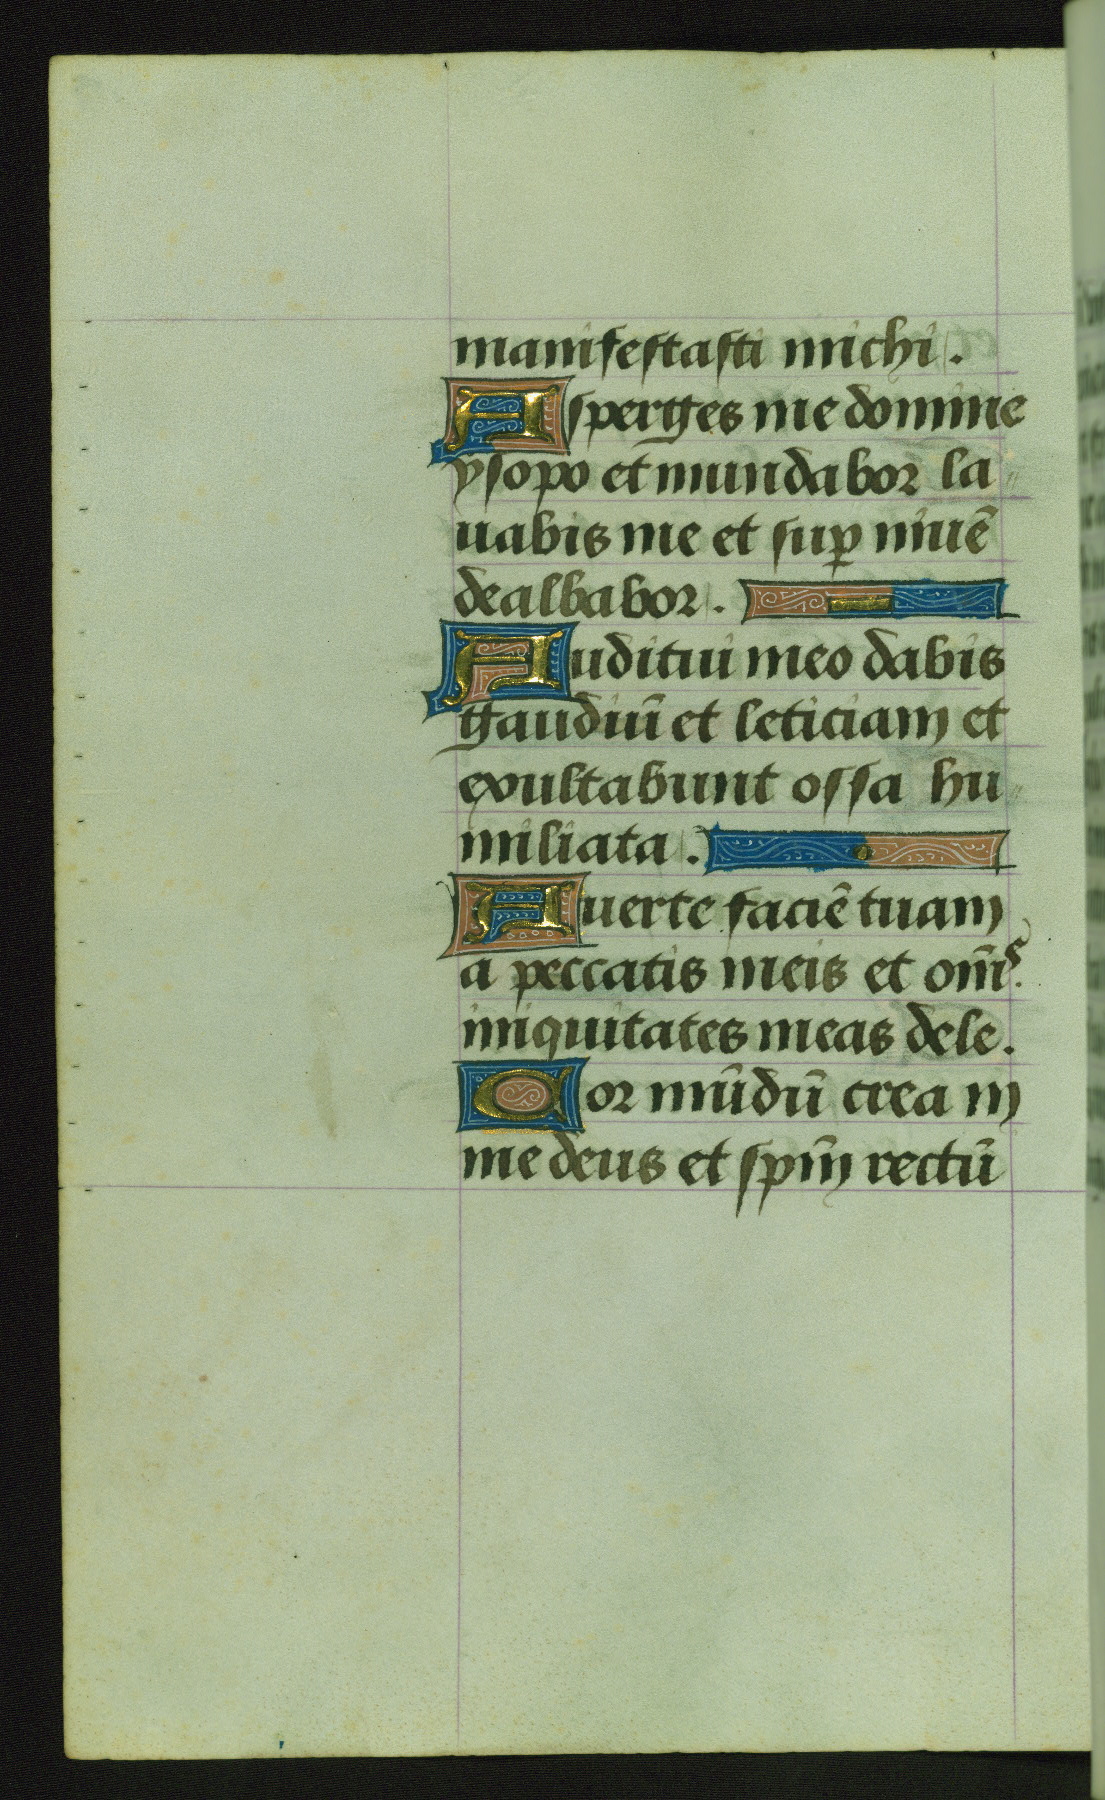 manifestasti michi.
Asperges me domine
ysopo et mundabor la〃
uabis me et sup̲ niuē
dealbabor.
Auditui meo dabis
gaudiū et leticiam et
exultabunt ossa hu〃
miliata.
Auerte faciē tuam
a peccatis meis et om̄s.
iniquitates meas dele.
Cor mūdū crea in
me deus et spm̄ rectū